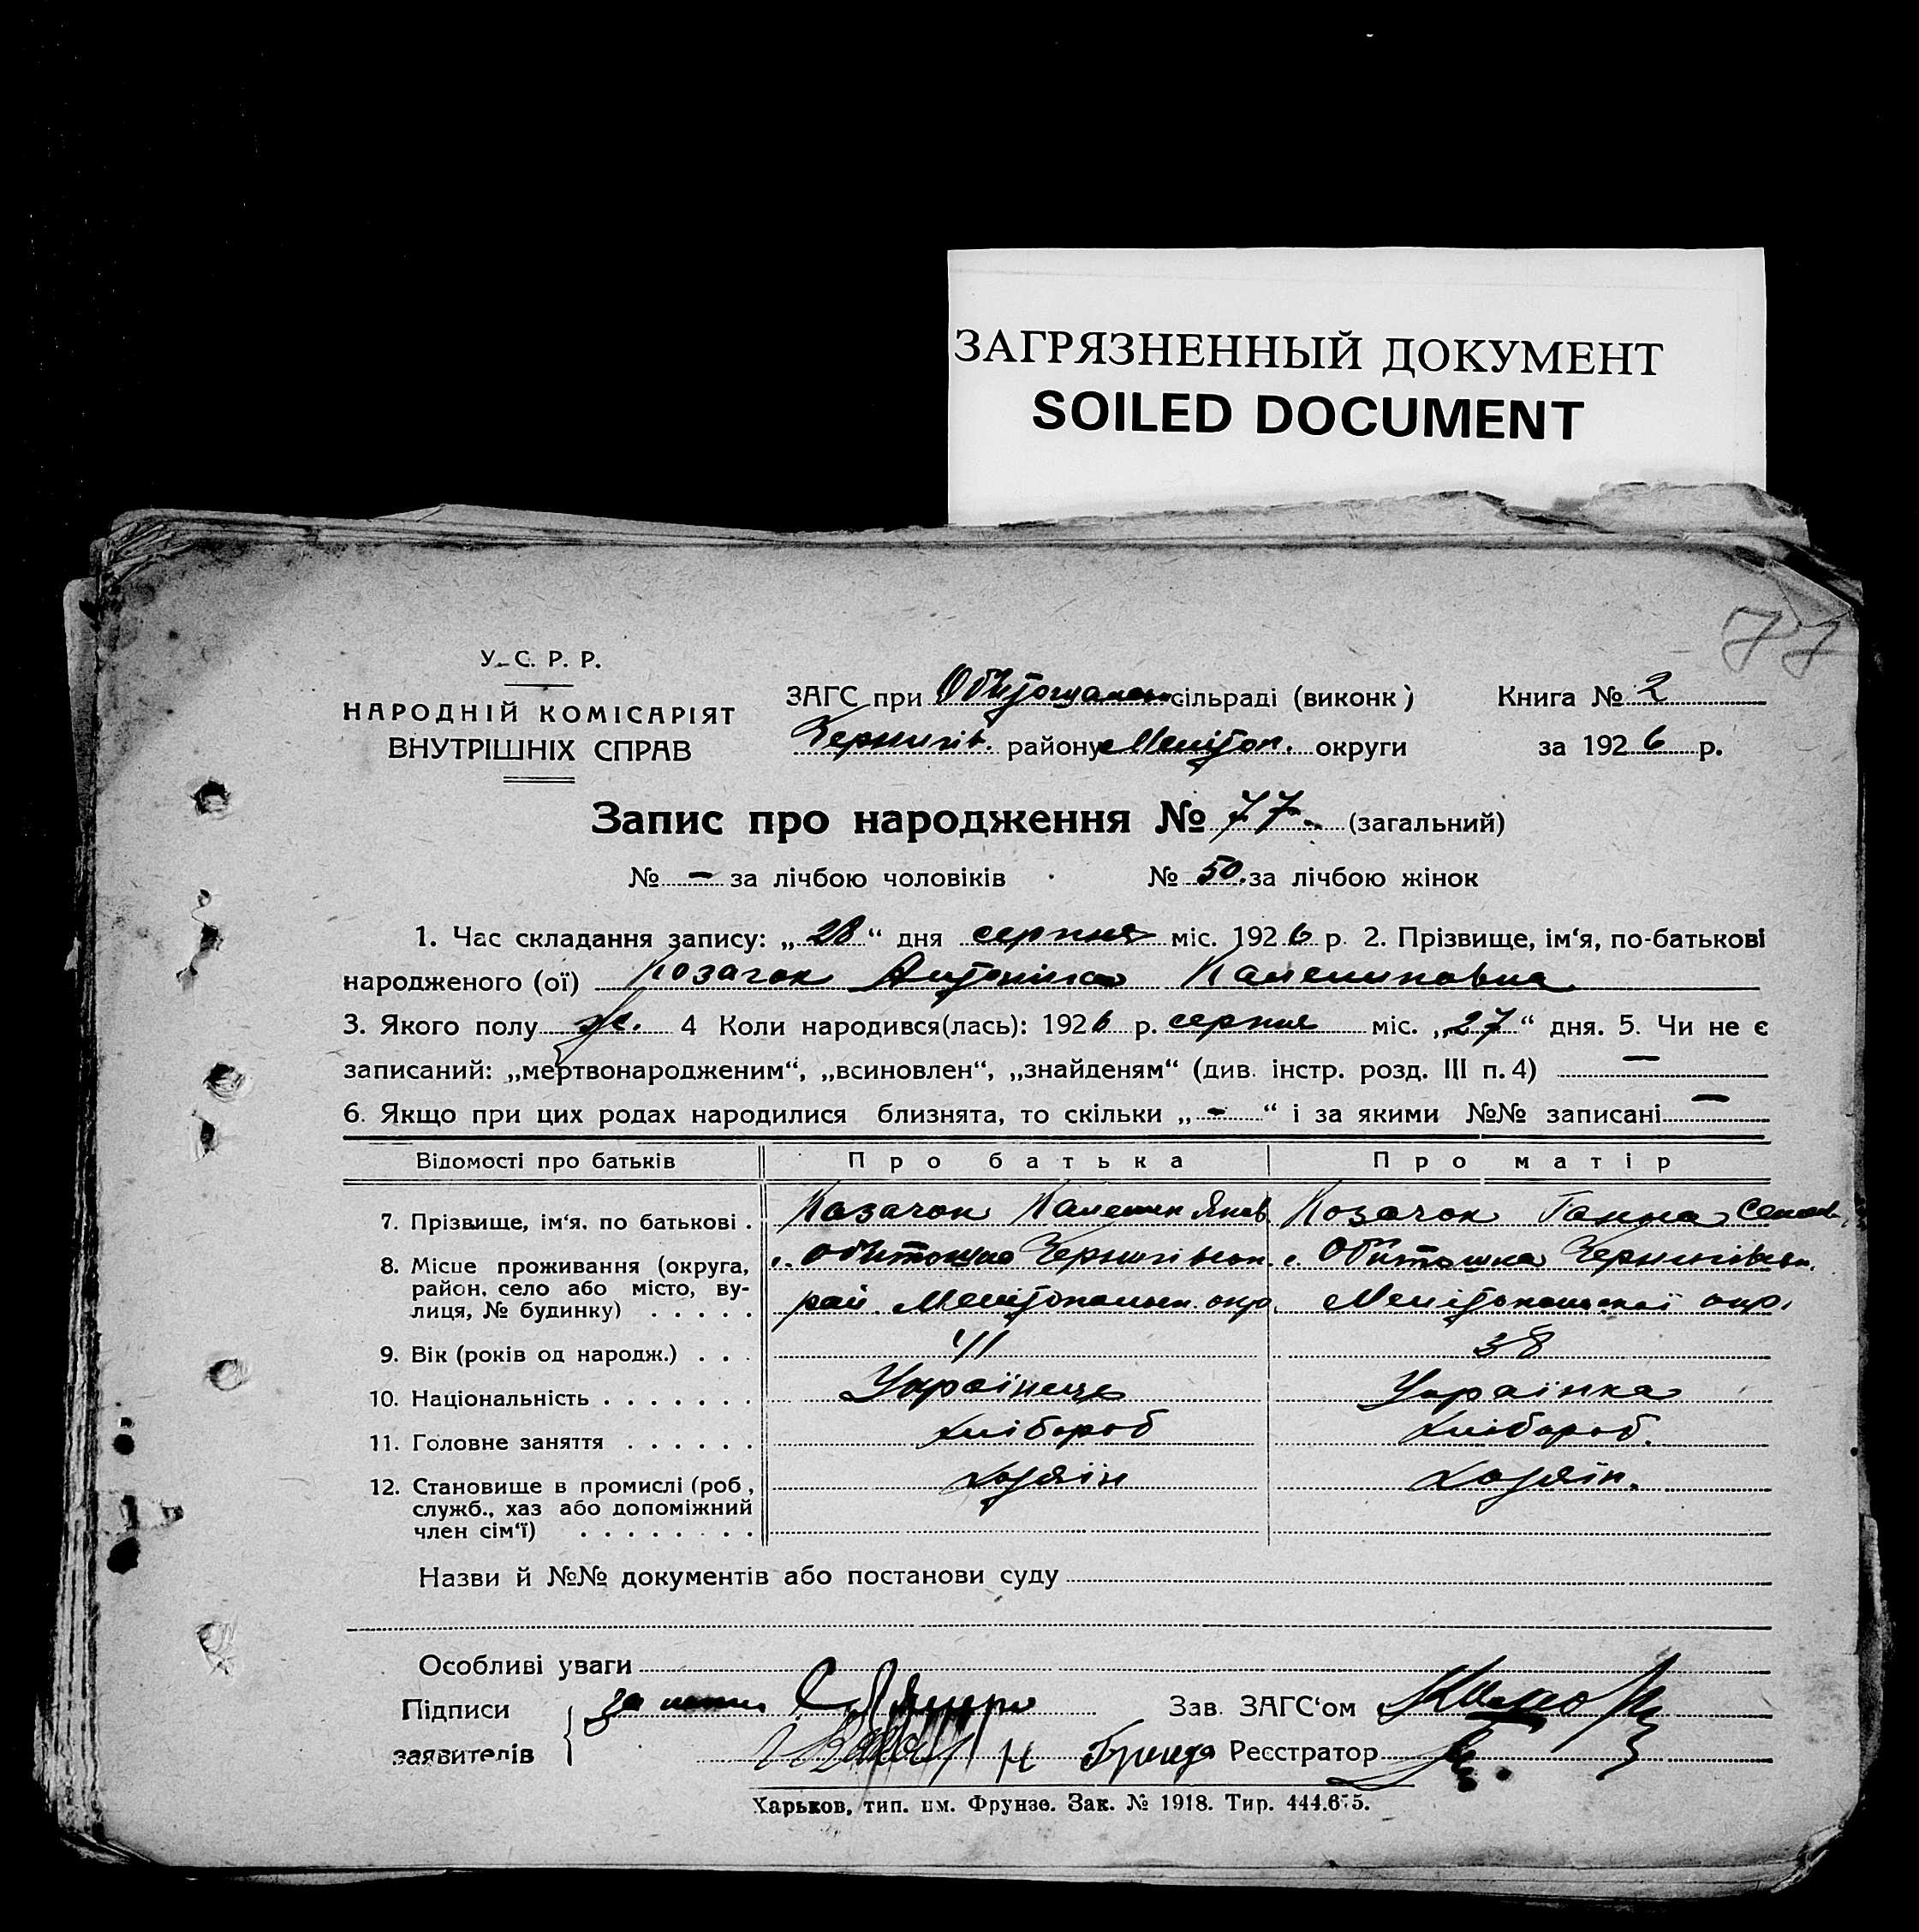 ЗАГРЯЗНЕННЫЙ ДОКУМЕНТ
SOILED DOCUMENT
77
У. С. Р. Р.
НАРОДНІЙ КОМІСАРІЯТ
ВНУТРІШНІХ СПРАВ
ЗАГС при сільраді (виконк) Книга № 2
Чернигів. району Мелітоп. округи за 1926 р.
Запис про народження № 77. (загальний)
№ – за лічбою чоловіків № 50. за лічбою жінок
1. Час складання запису: „28“ дня серпня міс. 1926 р. 2. Прізвище, ім‘я, по-батькові
народженого (ої) Козачок Антонина
3. Якого полу ж. 4 Коли народився(лась): 1926 р. серпня міс. „27“ дня. 5. Чи не є
записаний: „мертвонародженим“, „всиновлен“, „знайденям“ (див. інстр. розд. III п. 4) –
6. Якщо при цих родах народилися близнята, то скільки „-“ і за якими №№ записані –
Відомості про батьків Про батька Про матір
7. Прізвище, ім‘я, по батькові . Козачок Яков. Козачок Ганна
8. Місце проживання (округа, район, село або місто, вулиця, № будинку) . . . . . с. Обиточна Чернигівськ. с. Обиточна Чернигівськ.
рай. Мелітопольськ. окр. Мелітопольської окр.
9. Вік (років од народж.) . . . 41 38
10. Національність . . . . . . . Українець Українка
11. Головне заняття . . . . . . хлібороб хлібороб.
12. Становище в промислі (роб., служб., хаз або допоміжний член сім‘ї) . . . . . . . . хозяїн хозяїн.
Назви й №№ документів або постанови суду
Особливі уваги
Підписи
заявителів
Зав. ЗАГС‘ом
Реєстратор
Харьков, тип. им. Фрунзе. Зак. № 1918. Тир. 444.675.